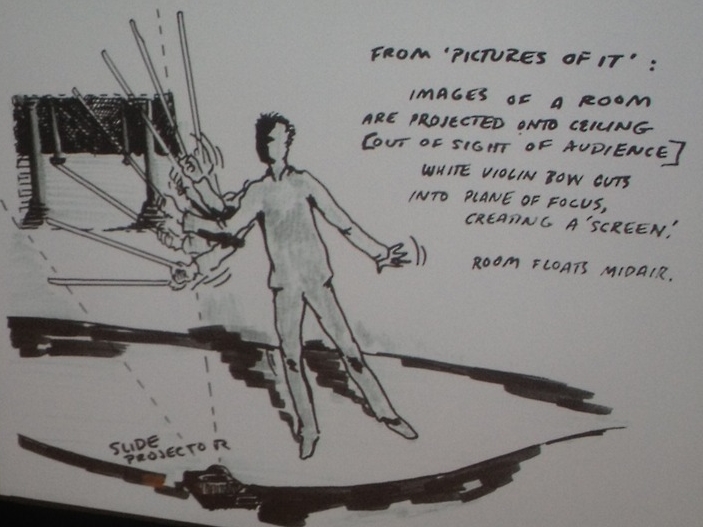 FROM 'PICTURES OF IT' :
IMAGES OF A ROOM
ARE PROJECTED ONTO CEILING
[OUT OF SIGHT OF AUDIENCE]
WHITE VIOLIN BOW CUTS
INTO PLANE OF FOCUS,
CREATING A 'SCREEN.'
ROOM FLOATS MIDAIR.
SLIDE
PROJECTOR